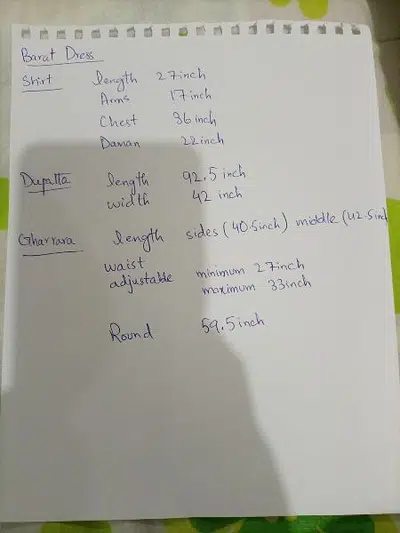 Barat Dress
Shirt length 27inch
Arms 17inch
Chest 36inch
Daman 22inch
Dupatta length 92.5inch
width 42 inch
Gharrara length sides (40.5inch) middle (42.5inch
waist
adjustable minimum 27inch
maximum 33inch
Round 59.5inch